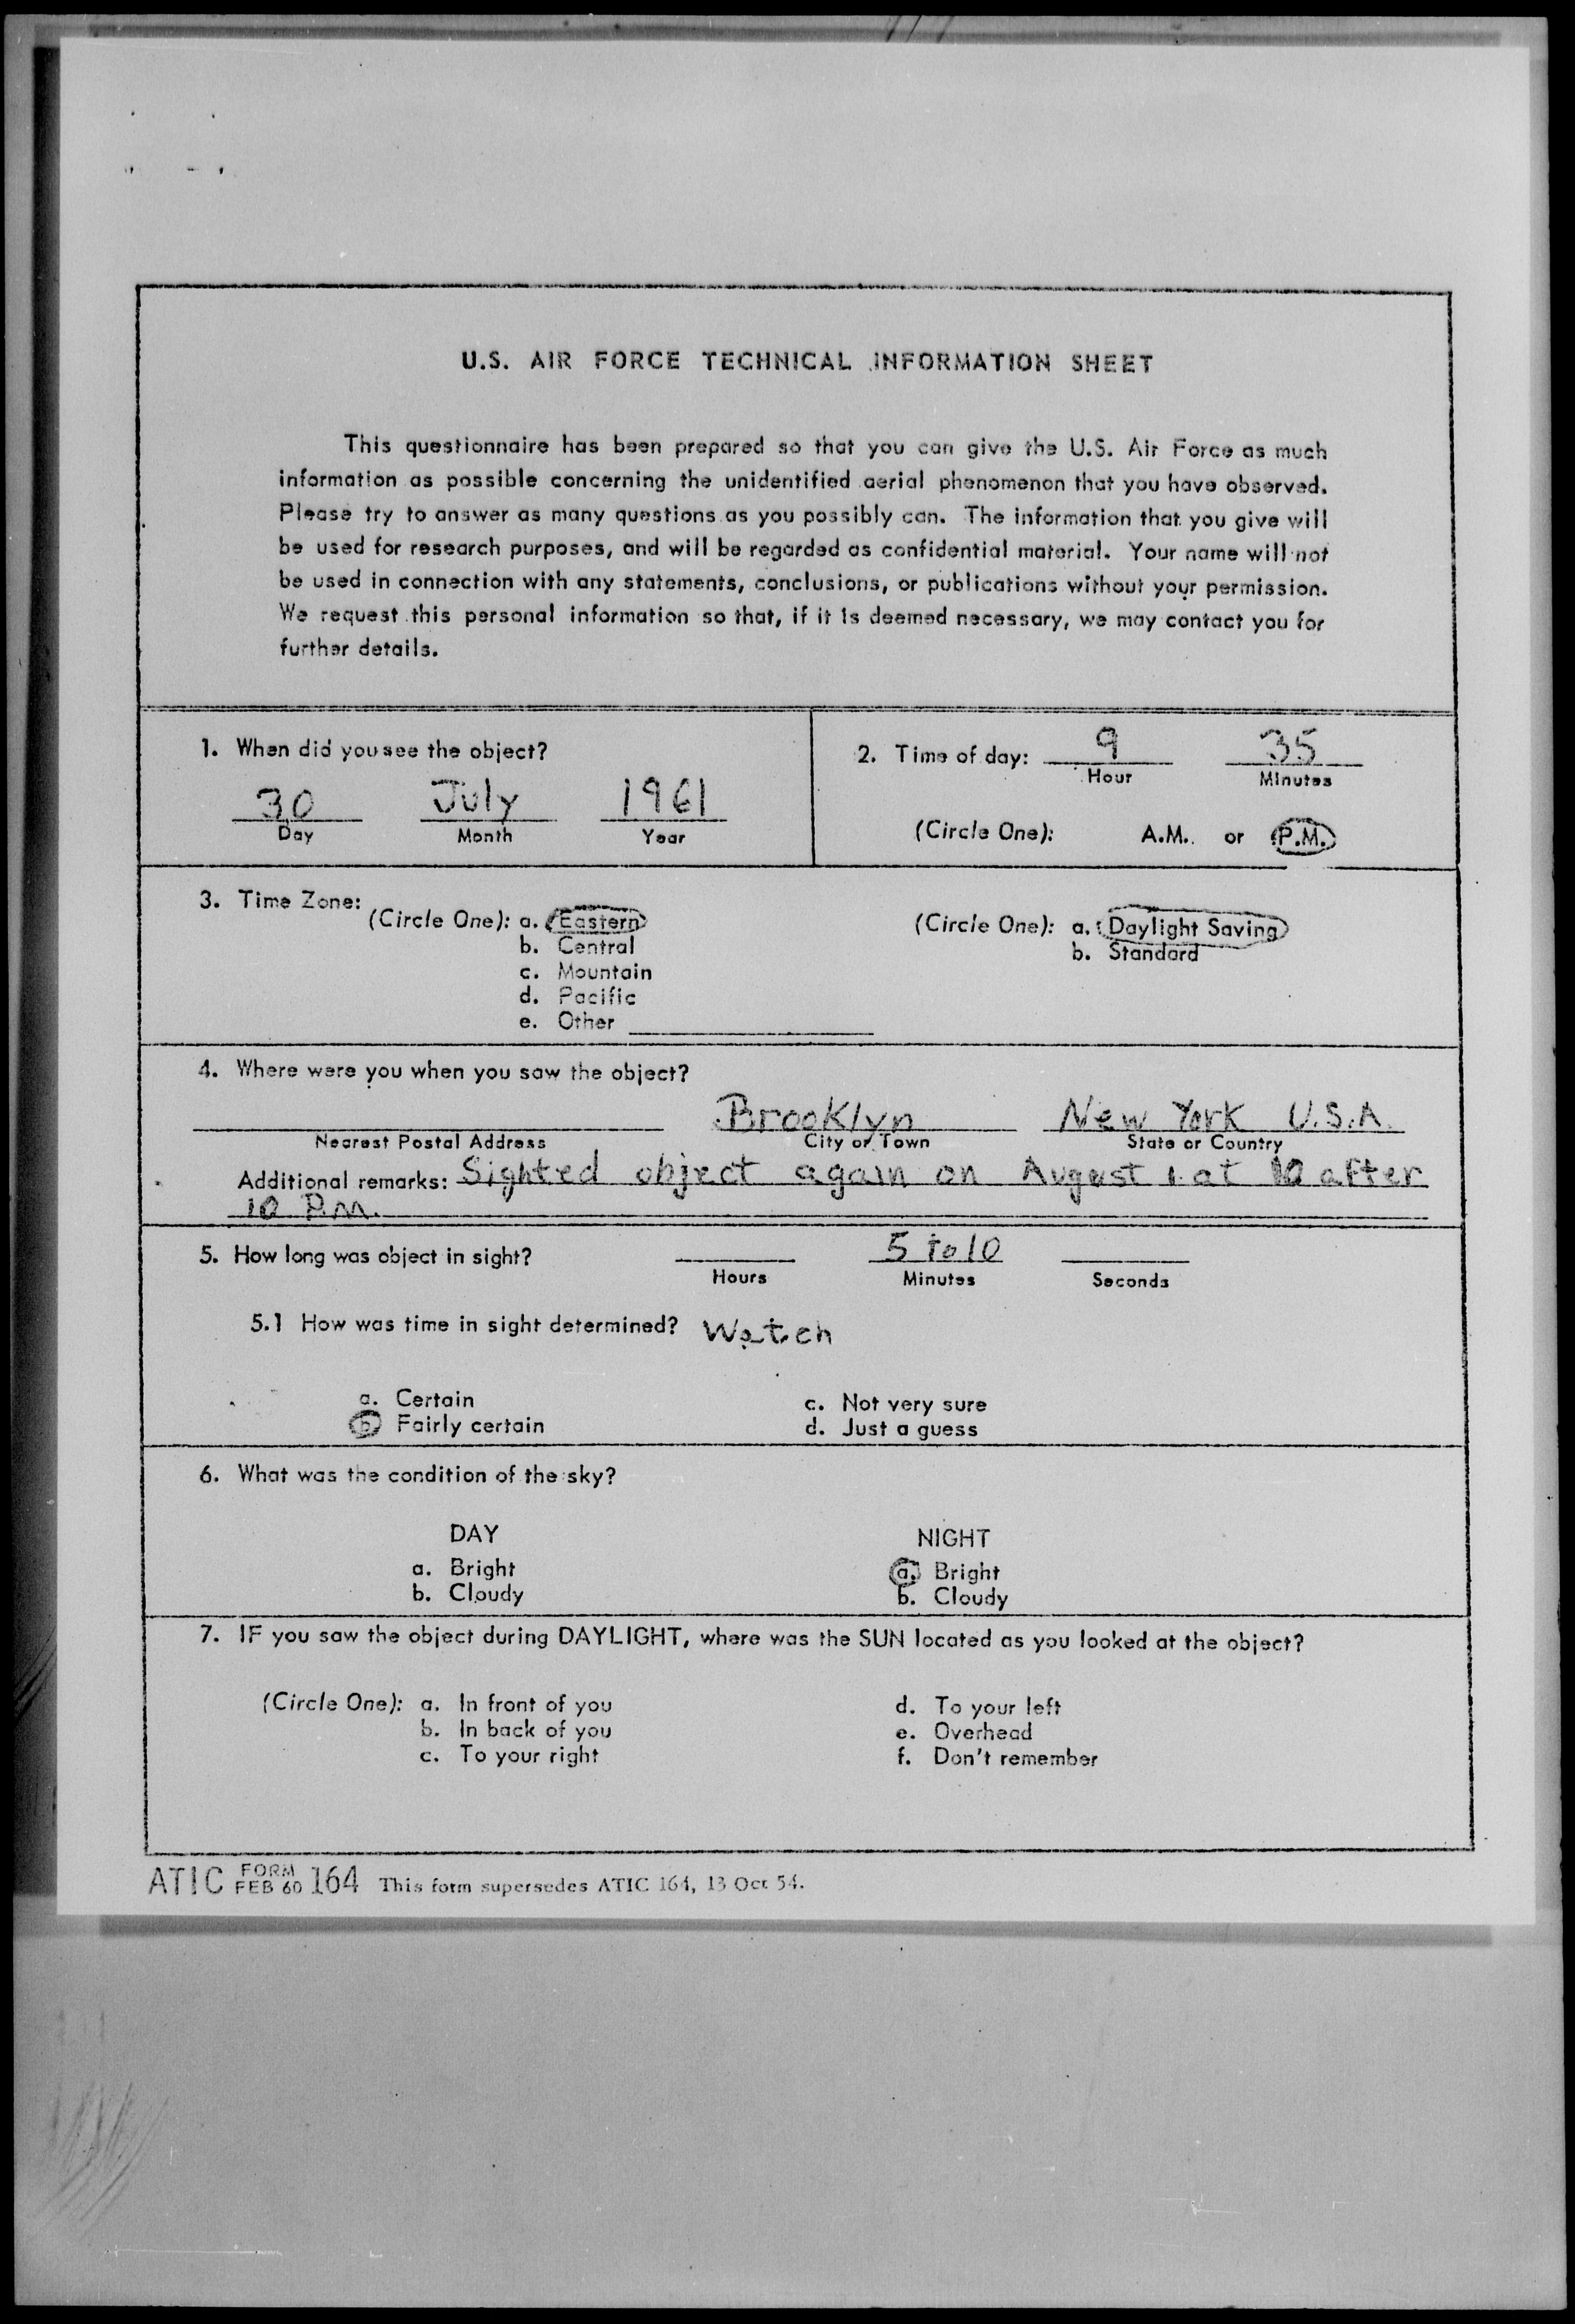 U.S. AIR FORCE TECHNICAL INFORMATION SHEET
This questionnaire has been prepared so that you can give the U.S. Air Force as much
information as possible concerning the unidentified aerial phenomenon that you have observed.
Please try to answer as many questions as you possibly can. The information that you give will
be used for research purposes, and will be regarded as confidential material. Your name will not
be used in connection with any statements, conclusions, or publications without your permission.
We request this personal information so that, if it is deemed necessary, we may contact you for
further details.
1. When did you see the object?
30 July 1961
Day Month Year
2. Time of day: 9 35
Hour Minutes
(Circle One): A.M. or P.M.
3. Time Zone:
(Circle One): a. Eastern
b. Central
c. Mountain
d. Pacific
e. Other
(Circle One): a. Daylight Saving
b. Standard
4. Where were you when you saw the object?
Brooklyn New York U.S.A.
Nearest Postal Address City or Town State or Country
Additional remarks: Sighted object again on August 1 at 10 after
10 P.M.
5. How long was object in sight? 5 to 10
Hours Minutes Seconds
5.1 How was time in sight determined? Watch
a. Certain
b. Fairly certain
c. Not very sure
d. Just a guess
6. What was the condition of the sky?
DAY
a. Bright
b. Cloudy
NIGHT
a. Bright
b. Cloudy
7. IF you saw the object during DAYLIGHT, where was the SUN located as you looked at the object?
(Circle One): a. In front of you
b. In back of you
c. To your right
d. To your left
e. Overhead
f. Don't remember
ATIC FORM FEB 60 164 This form supersedes ATIC 164, 13 Oct 54.